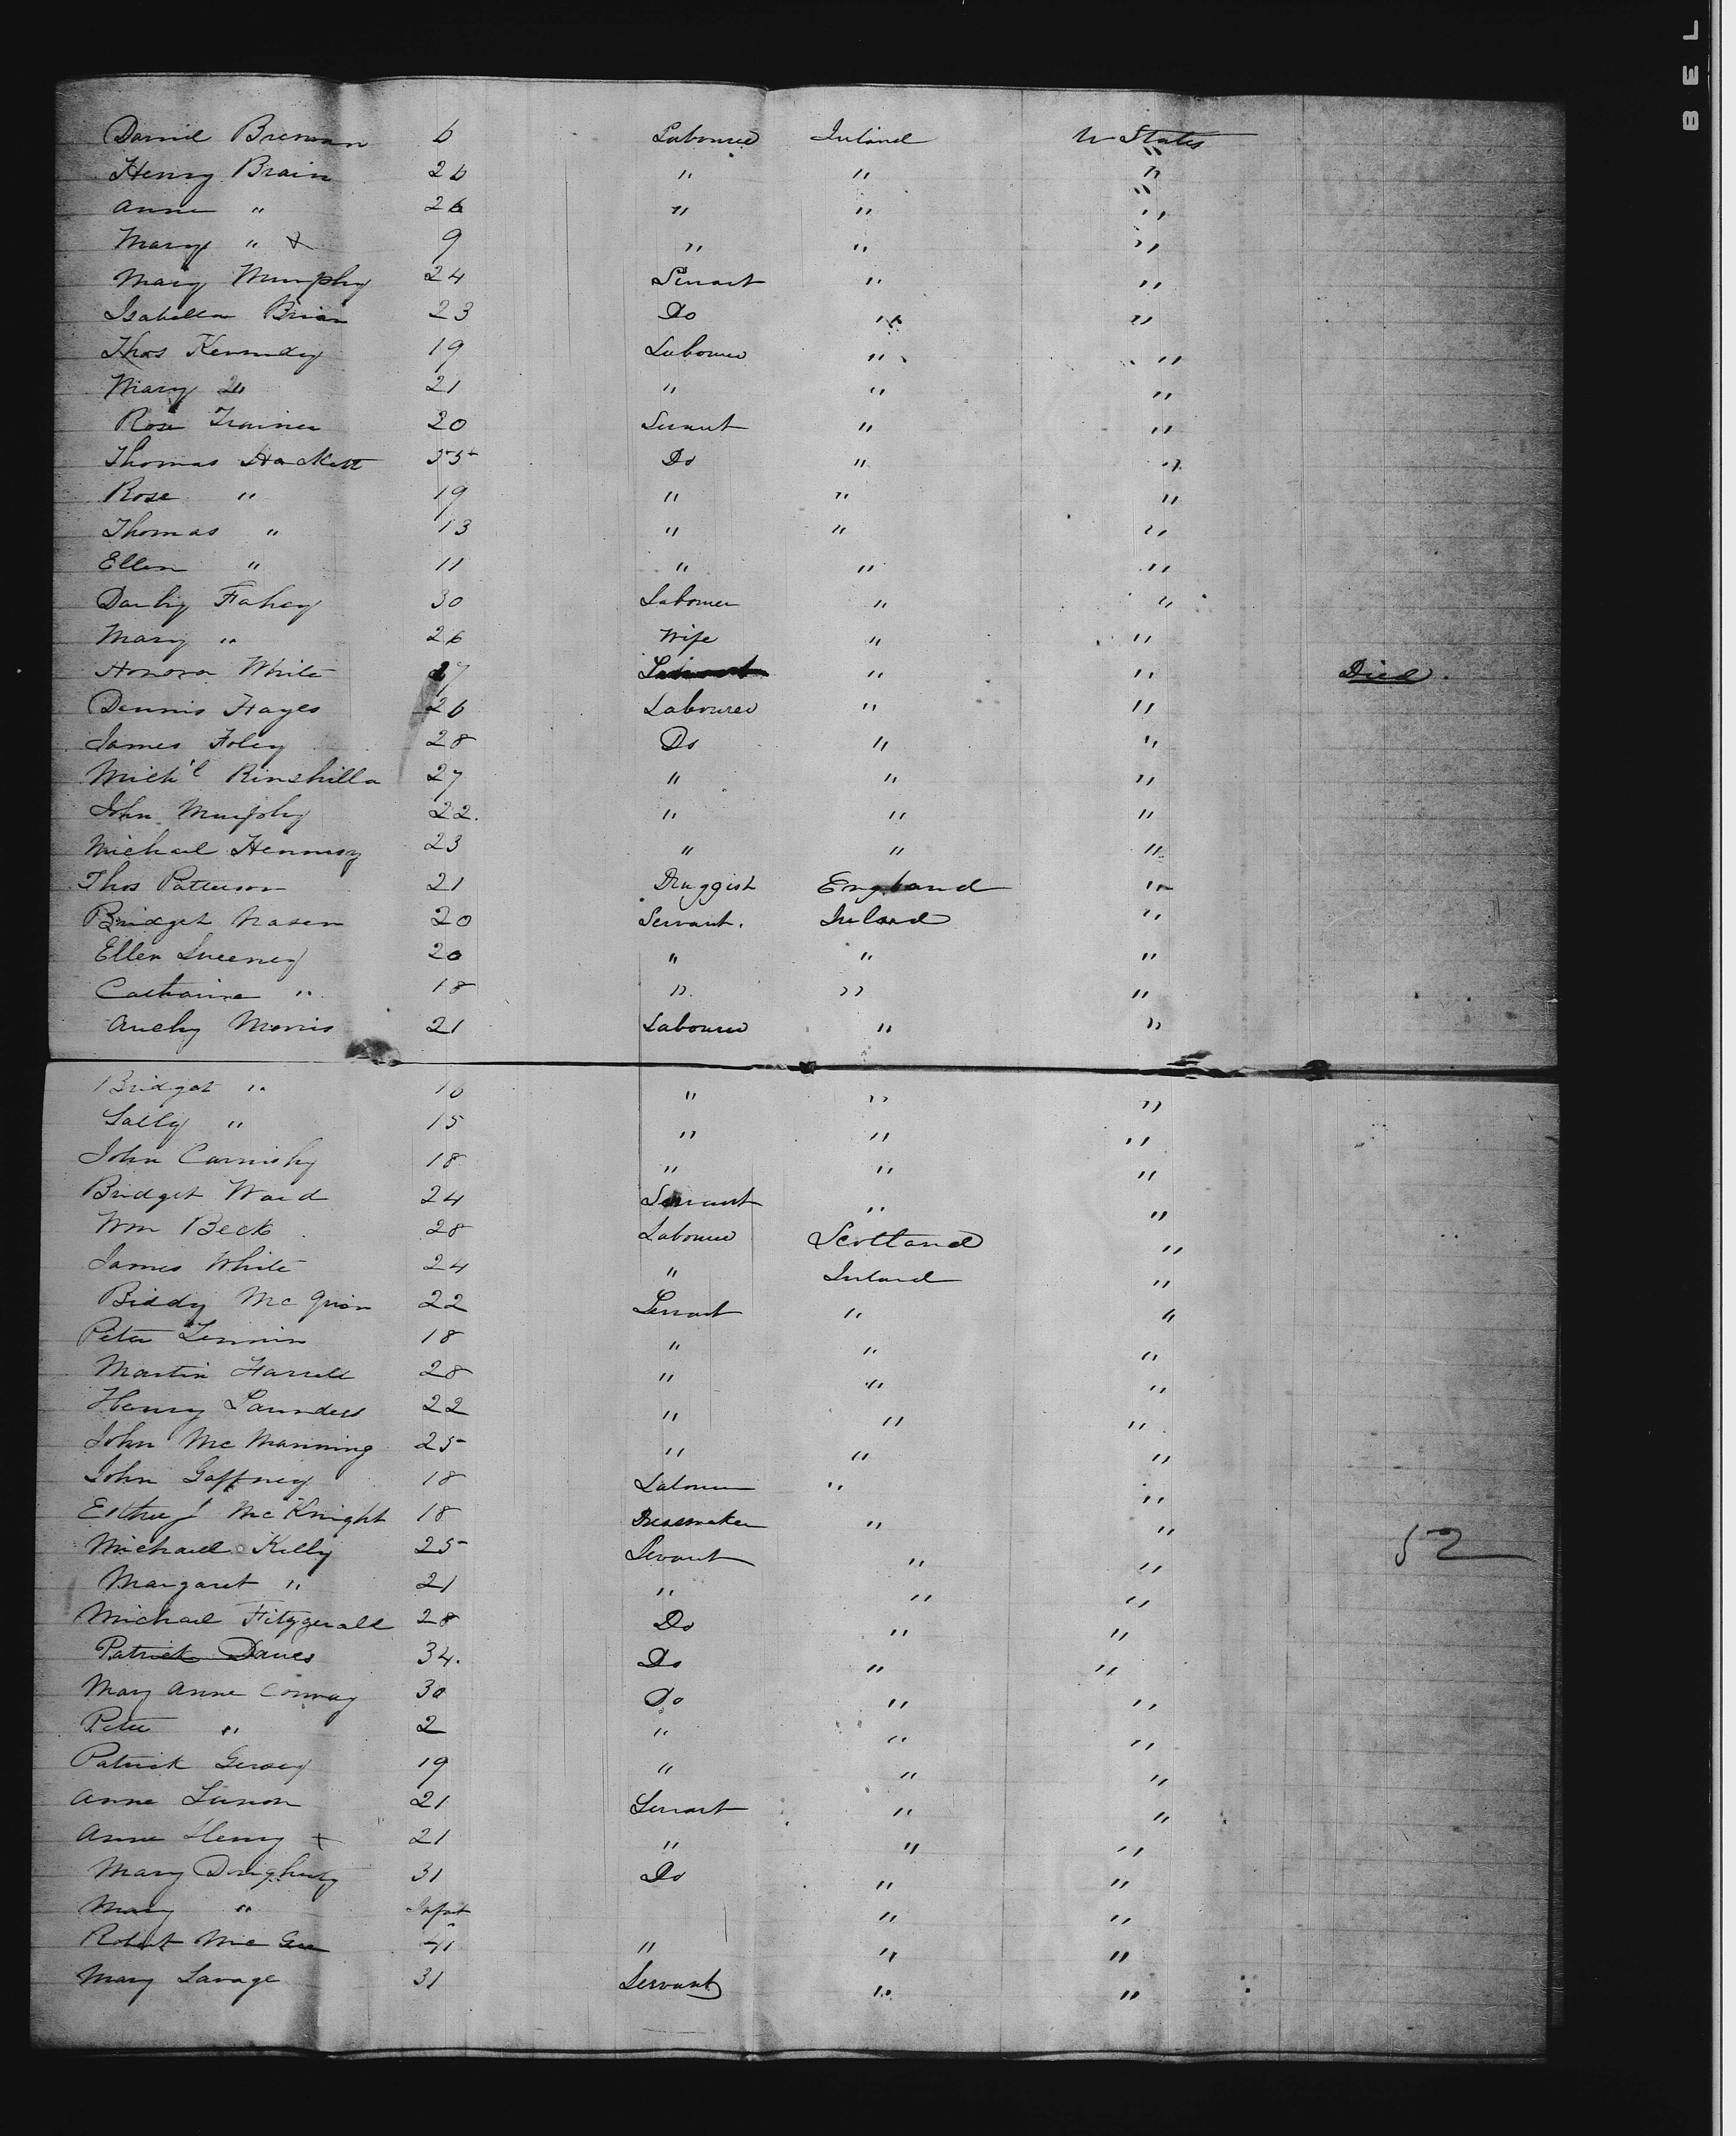 Daniel Brennan 6 Labourer Ireland U States
Henry Brain 26 " " "
Anne " 26 " " "
Mary " x 9 " " "
Mary Murphy 24 Servant " "
Isabella Brian 23 Do " "
Thos Kennedy 19 Labourer " "
Mary Do 21 " " "
Rose Trainer 20 Servant " "
Thomas Hackett 55 Do " "
Rose " 19 " " "
Thomas " 13 " " "
Ellen " 11 " " "
Darby Fahey 30 Labourer " "
Mary " 26 Wife " "
Honora White 27 " " Died
Dennis Hayes 26 Labourer " "
James Foley 28 Do " "
Mich'l Kinshilla 27 " " "
John Murphy 22. " " "
Michael Hennesy 23 " " "
Thos Patterson 21 Druggist England "
Bridget 20 Servant. Ireland "
Ellen Sweeney 20 " " "
Catharine " 18 " " "
Morris 21 Labourer " "
Bridget " 16 " " "
Sally " 15 " " "
John 18 " " "
Bridget Ward 24 Servant " "
Wm Beck 28 Labourer Scotland "
James White 24 " Ireland "
Biddy 22 Servant " "
Peter Lennin 18 " " "
Martin Farrell 28 " " "
Henry Saunders 22 " " "
John McManning 25 " " "
John Gaffney 18 Labourer " "
Esther J McKnight 18 Dressmaker " "
Michael Kelly 25 Servant " " 52
Margaret " 21 " " "
Michael Fitzgerald 28 Do " "
Patrick Davies 34. Do " "
Mary Anne Conway 30 Do " "
Peter " 2 " " "
Patrick 19 " " "
Anne 21 Servant " "
Anne Henry x 21 " " "
Mary Dougherty 31 Do " "
Mary " Infat " "
Robert McGee " " "
Mary Savage 31 Servant " "
BEL